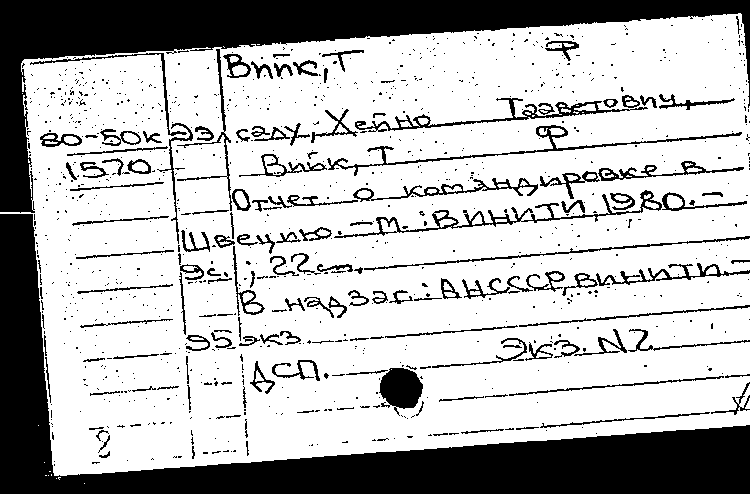 Виик, Т Ф
80-50к Ээлсалу, Хейно Тааветович,
1570 Виик, Т Ф.
Отчет о командировке в
Швецию. – М. : ВИНИТИ, 1980. –
9с. ; 22см.
В надзаг. : АН СССР, ВИНИТИ. –
95 экз.
ДСП. Экз. N2
2